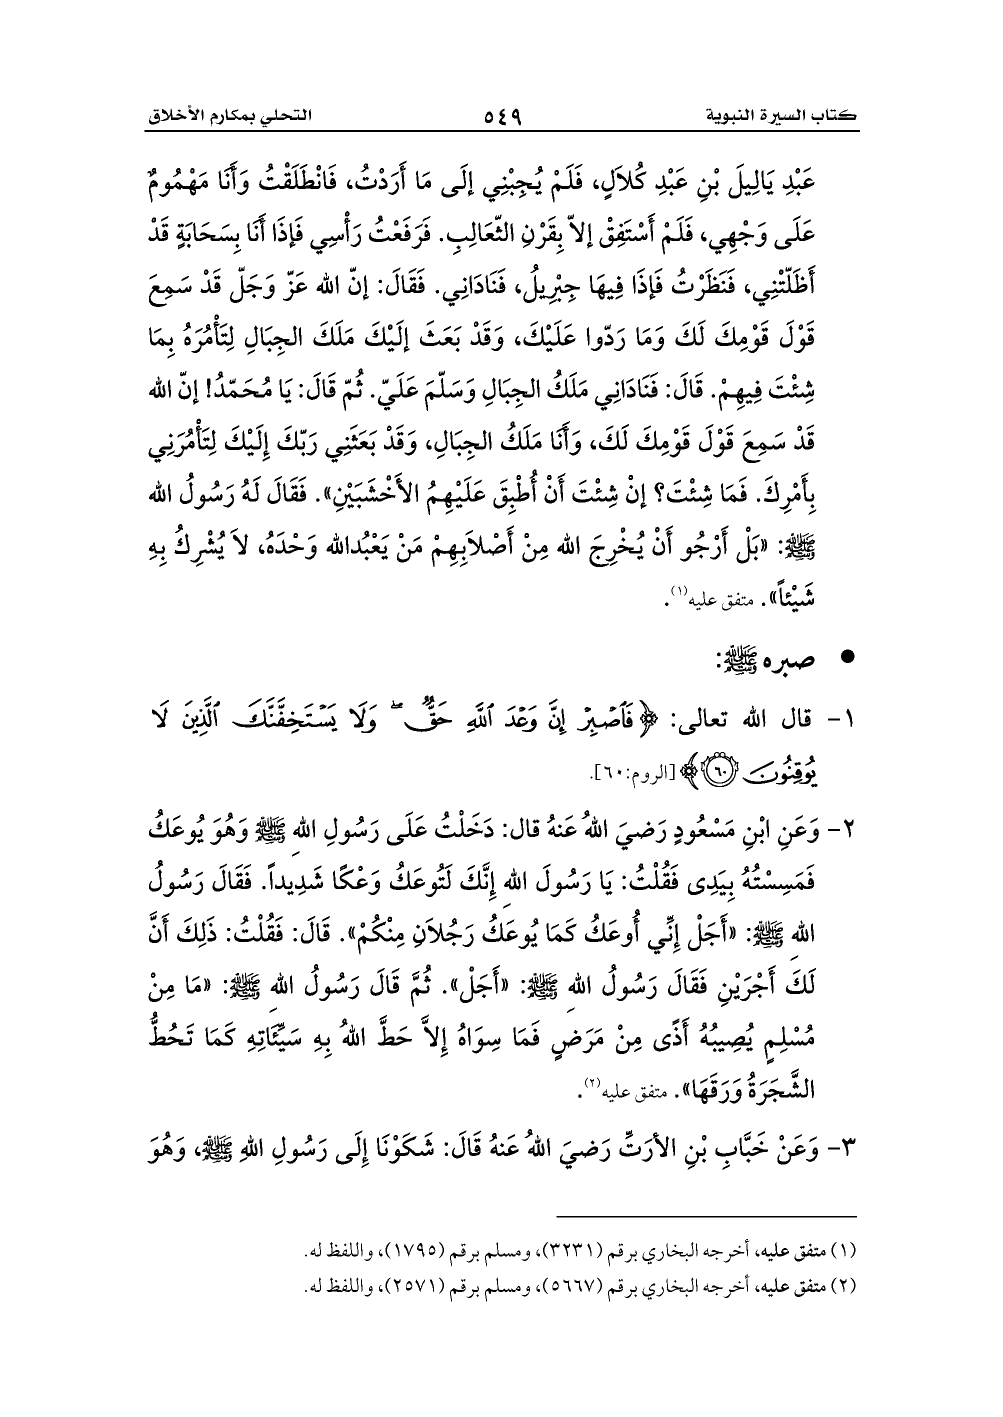 كتاب السيرة النبوية ٥٤٩ التحلي بمكارم الأخلاق
عَبْدِ يَالِيلَ بْنِ عَبْدِ كُلاَلٍ، فَلَمْ يُجِبْنِي إلَى مَا أَرَدْتُ، فَانْطَلَقْتُ وَأَنَا مَهْمُومٌ
عَلَى وَجْهِي، فَلَمْ أَسْتَفِقْ إلاّ بِقَرْنِ الثّعَالِبِ. فَرَفَعْتُ رَأْسِي فَإذَا أَنَا بِسَحَابَةٍ قَدْ
أَظَلّتْنِي، فَنَظَرْتُ فَإذَا فِيهَا جِبْرِيلُ، فَنَادَانِي. فَقَالَ: إنّ الله عَزّ وَجَلّ قَدْ سَمِعَ
قَوْلَ قَوْمِكَ لَكَ وَمَا رَدّوا عَلَيْكَ، وَقَدْ بَعَثَ إلَيْكَ مَلَكَ الجِبَالِ لِتَأْمُرَهُ بِمَا
شِئْتَ فِيهِمْ. قَالَ: فَنَادَانِي مَلَكُ الجِبَالِ وَسَلّمَ عَلَيّ. ثُمّ قَالَ: يَا مُحَمّدُ! إنّ الله
قَدْ سَمِعَ قَوْلَ قَوْمِكَ لَكَ، وَأَنَا مَلَكُ الجِبَالِ، وَقَدْ بَعَثَنِي رَبّكَ إِلَيْكَ لِتَأْمُرَنِي
بِأَمْرِكَ. فَمَا شِئْتَ؟ إنْ شِئْتَ أَنْ أُطْبِقَ عَلَيْهِمُ الأَخْشَبَيْنِ». فَقَالَ لَهُ رَسُولُ الله
ﷺ: «بَلْ أَرْجُو أَنْ يُخْرِجَ الله مِنْ أَصْلاَبِهِمْ مَنْ يَعْبُدالله وَحْدَهُ، لاَ يُشْرِكُ بِهِ
شَيْئاً». متفق عليه(١).
• صبره ﷺ:
١- قال الله تعالى: ﴿فَٱصْبِرْ إِنَّ وَعْدَ ٱللَّهِ حَقٌّ ۖ وَلَا يَسْتَخِفَّنَّكَ ٱلَّذِينَ لَا
يُوقِنُونَ ٦٠﴾ [الروم:٦٠].
٢- وَعَنِ ابْنِ مَسْعُودٍ رَضيَ اللهُ عَنهُ قال: دَخَلْتُ عَلَى رَسُولِ اللهِ ﷺ وَهُوَ يُوعَكُ
فَمَسِسْتُهُ بِيَدِى فَقُلْتُ: يَا رَسُولَ اللهِ إِنَّكَ لَتُوعَكُ وَعْكًا شَدِيداً. فَقَالَ رَسُولُ
اللهِ ﷺ: «أَجَلْ إِنِّي أُوعَكُ كَمَا يُوعَكُ رَجُلاَنِ مِنْكُمْ». قَالَ: فَقُلْتُ: ذَلِكَ أَنَّ
لَكَ أَجْرَيْنِ فَقَالَ رَسُولُ اللهِ ﷺ: «أَجَلْ». ثُمَّ قَالَ رَسُولُ اللهِ ﷺ: «مَا مِنْ
مُسْلِمٍ يُصِيبُهُ أَذًى مِنْ مَرَضٍ فَمَا سِوَاهُ إِلاَّ حَطَّ اللهُ بِهِ سَيِّئَاتِهِ كَمَا تَحُطُّ
الشَّجَرَةُ وَرَقَهَا». متفق عليه(٢).
٣- وَعَنْ خَبَّابِ بْنِ الأرَتِّ رَضيَ اللهُ عَنهُ قَالَ: شَكَوْنَا إِلَى رَسُولِ اللهِ ﷺ، وَهُوَ
(١) متفق عليه، أخرجه البخاري برقم (٣٢٣١)، ومسلم برقم (١٧٩٥)، واللفظ له.
(٢) متفق عليه، أخرجه البخاري برقم (٥٦٦٧)، ومسلم برقم (٢٥٧١)، واللفظ له.